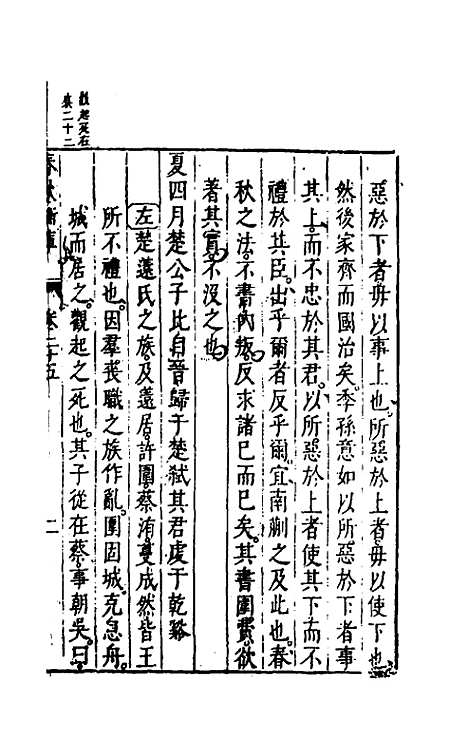 惡於下者毋以事上也所惡於上者毋以使下也
然後家齊而國治矣季孫意如以所惡於下者事
其上而不忠於其君以所惡於上者使其下而不
禮於其臣出乎爾者反乎爾宜南蒯之及此也春
秋之法不書內叛反求諸己而已矣其書圍費欲
著其實不沒之也
夏四月楚公子比自晉歸于楚弒其君虔于乾谿
左楚薳氏之族及薳居許圍蔡洧蔓成然皆王
所不禮也因羣喪職之族作亂圍固城克息舟
城而居之觀起之死也其子從在蔡事朝吳曰
觀起死在
襄二十二
春秋衡庫
卷二十五
二